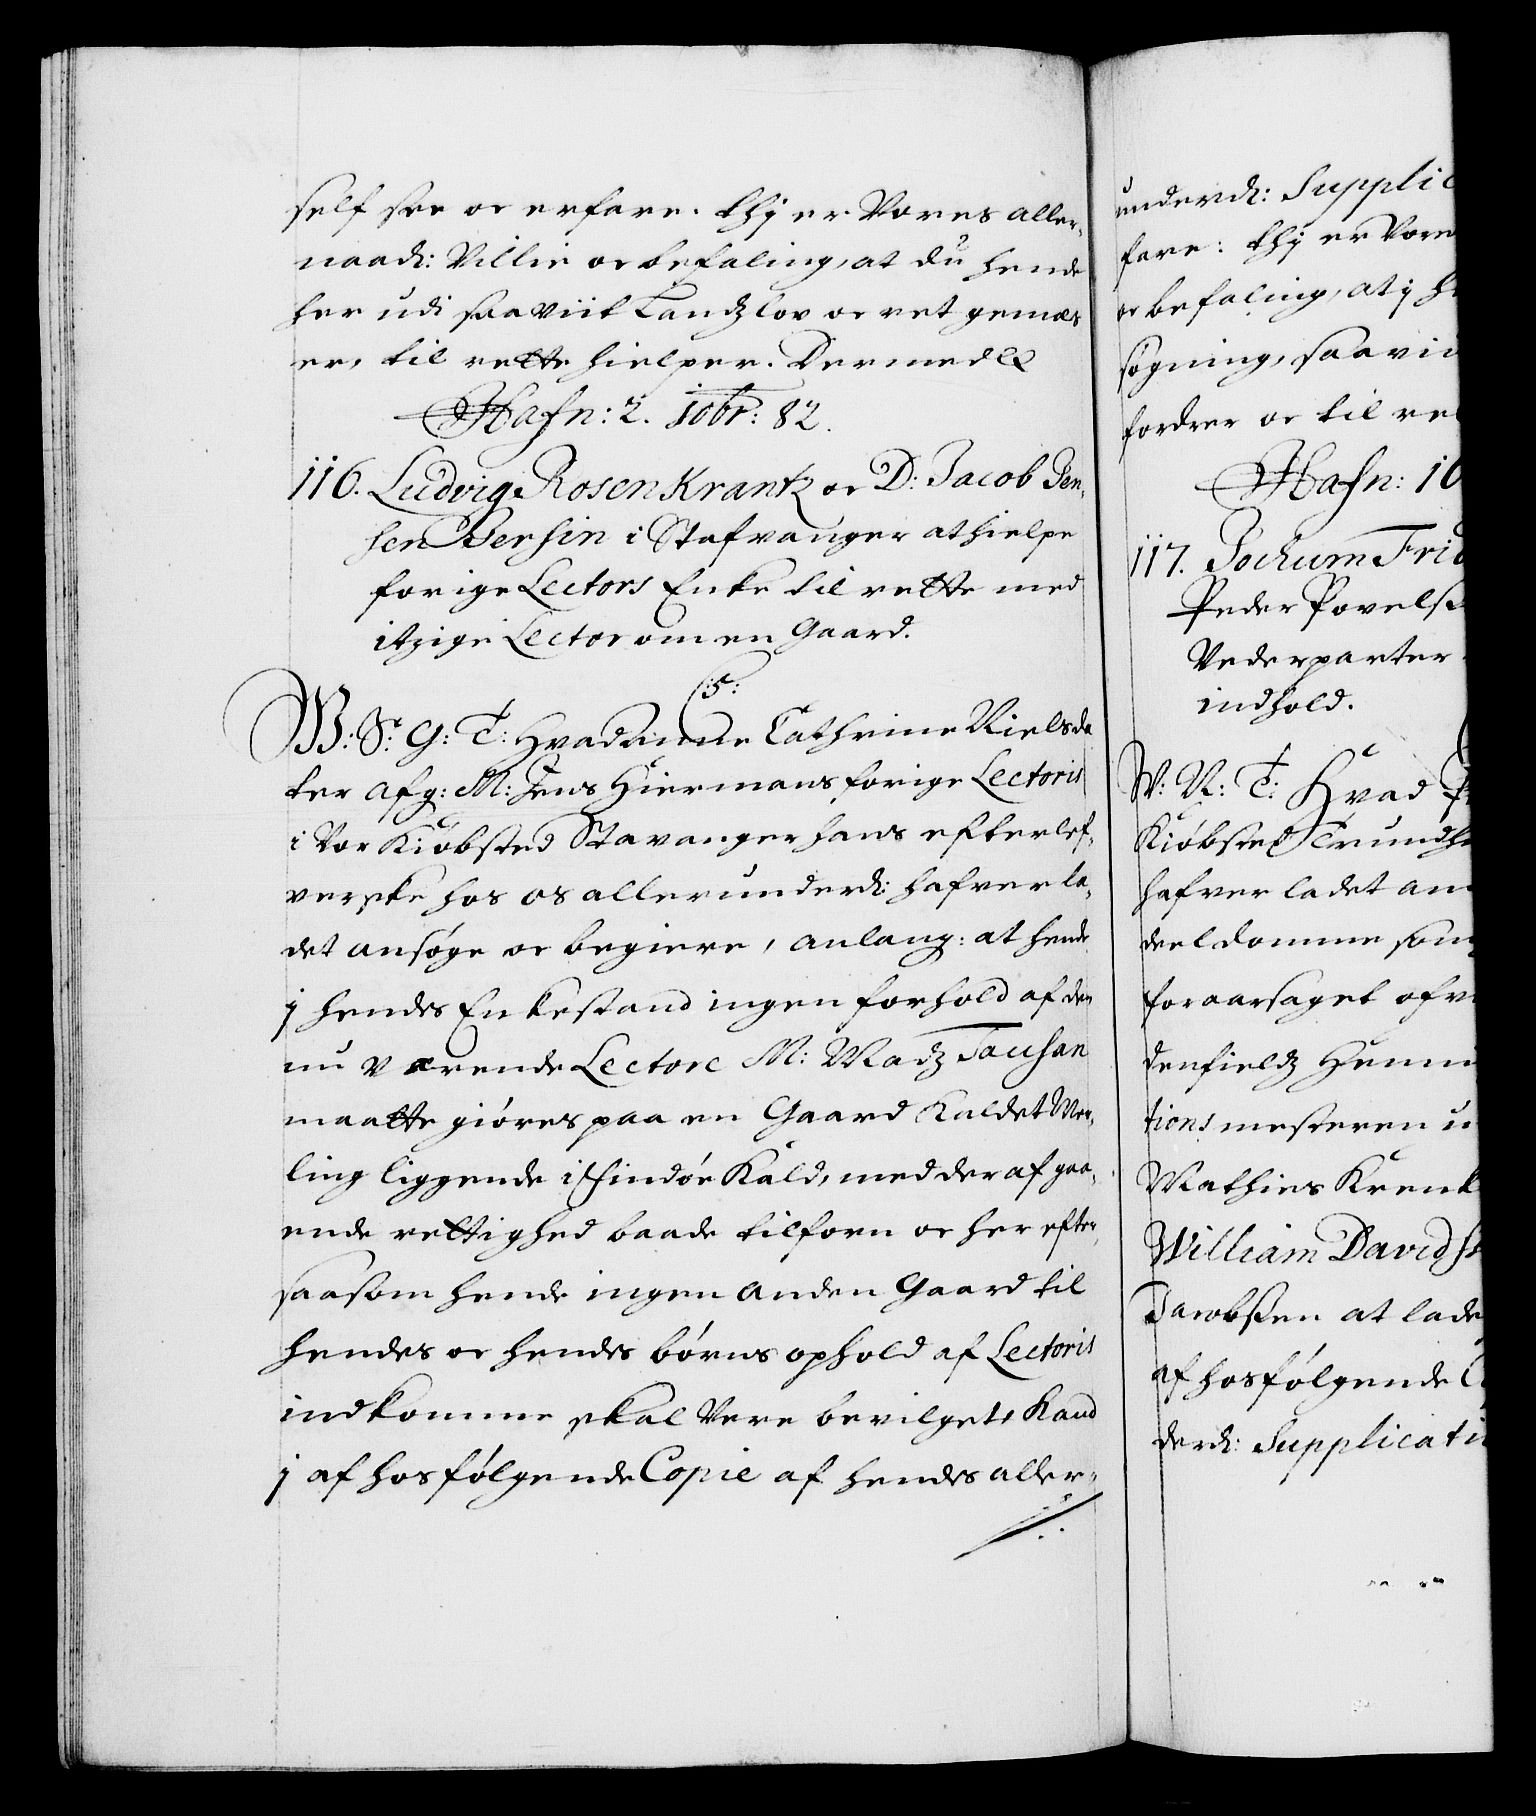 self see oc erfare. thj er Vores aller,
naadl: Villie oc befaling, at du hende
her udi saa viit Landz lov oc ret gemæs
er, til rette hielper. Dermed &c
Hafn: 2. Xobr: 82.
116. Ludvig Rosen Krantz oc D: Jacob Jen,
sen Jersin i Stafvanger at hielpe
forige Lectors Enke til rette med
itzige Lector om en Gaard.
C5:
W: S: G: T: Hvad Cathrine Nielsda
ter Afg: M: Jens Hiermans forige Lectoris
i Vor Kiøbsted Stavanger hans efterlef,
verske hos os allerunderd: hafver la,
det ansøge oc begiere, anlang: at hende
j hendes Enkestand ingen forhold af den
nu verende Lectore M: Madz Tausan
maatte giøres paa en Gaard Kaldet Mer,
ling liggende i Findøe Kald, med der af gaa,
ende rettighed baade tilforn oc her efter,
saasom hende ingen anden Gaard til
hendes oc hendes børns ophold af Lectoris
indkomme skal Vere bevilget, Kand
j af hosfølgende Copie af hendes aller-
underd: Supplic
fare: thj er Vore
oc befaling, at j he
søgning, saavi
fordrer oc til re
Hafn: 10
117. Jochum Frid
Peder Povelse
Vederparter
indhold.
W: V: T: Hvad P
Kiøbsted Trundh
hafver ladet an
deel domme som
foraarsaget ofv
denfieldz Henni
tions mesteren u
Mathies Krenk
William Davidse
Jacobsen at lade
af hosfølgende C
derd: Supplicati